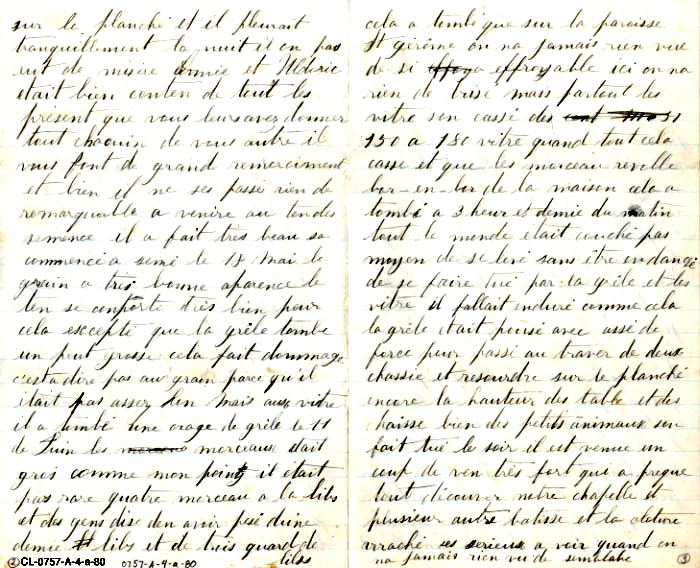 sur le planché et il pleurait
tranquillement la nuit il on pas
eut de misère Anmie et Ulderic
etait bien conten de tout les
présent que vous leurs avez donner
tout chacuin de vous autre il
vous font de grand remerciment
et bien il ne ses passé rien de
remarquable a venire au ten des
semence il a fait très beau sa
commencé a semé le 18 Mai le
grain a très bonne aparence le
ten se conporte très bien pour
cela excepté que la grêle tombe
un peut grosse cela fait dommage
c'est a dire pas au grain parce qu'il
était pas assez lon mais aux vitre
il a tombé une orage de grêle le 11
de Juin les morceaux était
gros comme mon point il était
pas rare quatre morceau a la libs
et des gens dise den avoir pesé d'une
demie libs et de trois quard de
libs
2 CL-0757-A-4-a-80
0757-A-4-a-80
cela a tombé que sur la paroisse
St gérôme on na jamais rien vue
de si effroyable ici on na
rien de brisé mais partout les
vitre son cassé des
150 a 180 vitre quand tout cela
casse et que les morceau revolle
bor-en-bor de la maison cela a
tombé a 3 heur et demie du matin
tout le monde etait couché pas
moyen de se levé sans être en dangé
de se faire tué par la grêle et les
vitre il fallait enduré comme cela
la grêle etait puisé avec assé de
force pour passé au traver de deux
chassie et resourdre sur le planché
encore la hauteur des table et des
chaisse bien des petits animaux son
fait tué le soir il est venue un
coup de ven très fort qui a preque
tout dicouver notre chapelle et
plusieur autre batisse et la cloture
arraché ses serieux a voir quand on
na jamais rien vu de semblable
3